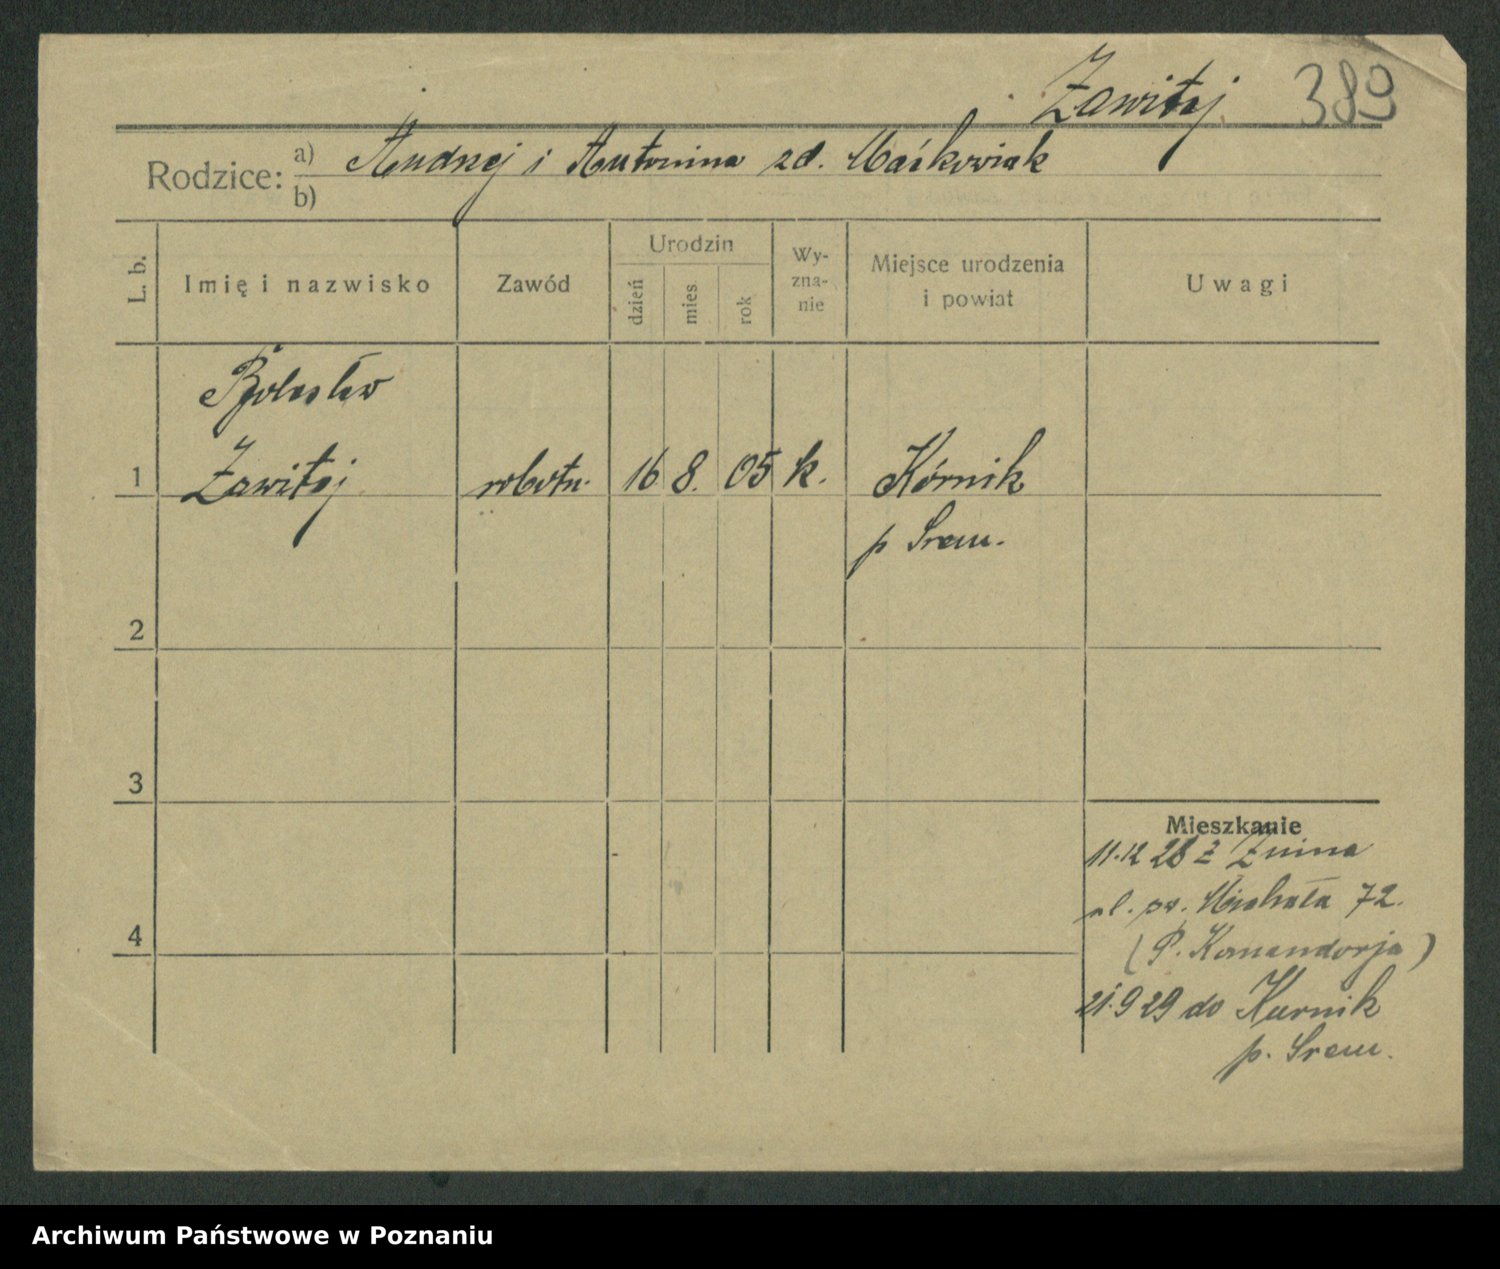 Zawitaj 389
Rodzice: a) Andrzej i Antonina zd. Maćkowiak
b)
L. b. Imię i nazwisko Zawód Urodzin dzień mies rok Wy-zna-nie Miejsce urodzenia i powiat Uwagi
Bolesław
1 Zawitaj robotn. 16 8. 05 k. Kórnik
p Śrem.
2
3
Mieszkanie
11.12 28 z Żnina
ul. św. Michała 72.
4
(P. Komandorja)
21.9 29 do Kurnik
p. Śrem.
Archiwum Państwowe w Poznaniu